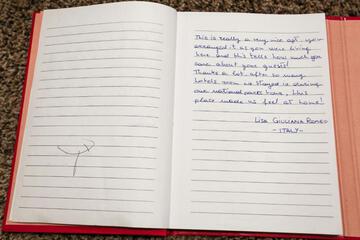 This is really a very nice apt. you
arranged it as you were living
here and this tells how much you
care about your guests!
Thanks a lot, after so many
hotels we stayed in
our national parks tour, this
place makes us feel at home!
LISA GIULIANA ROMEO
- ITALY -